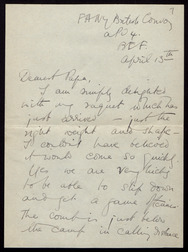 7
PANZ British Convoy
A.P.O. 4.
B.E.F.
April 13th
Dearest Papa,
I am simply delighted
with my racquet which has
just arrived – just the
right weight and shape –
I couldn't have believed
it would come so quickly.
Yes we are very lucky
to be able to slip down
and get a game often
the court is just below
the camp in calling distance